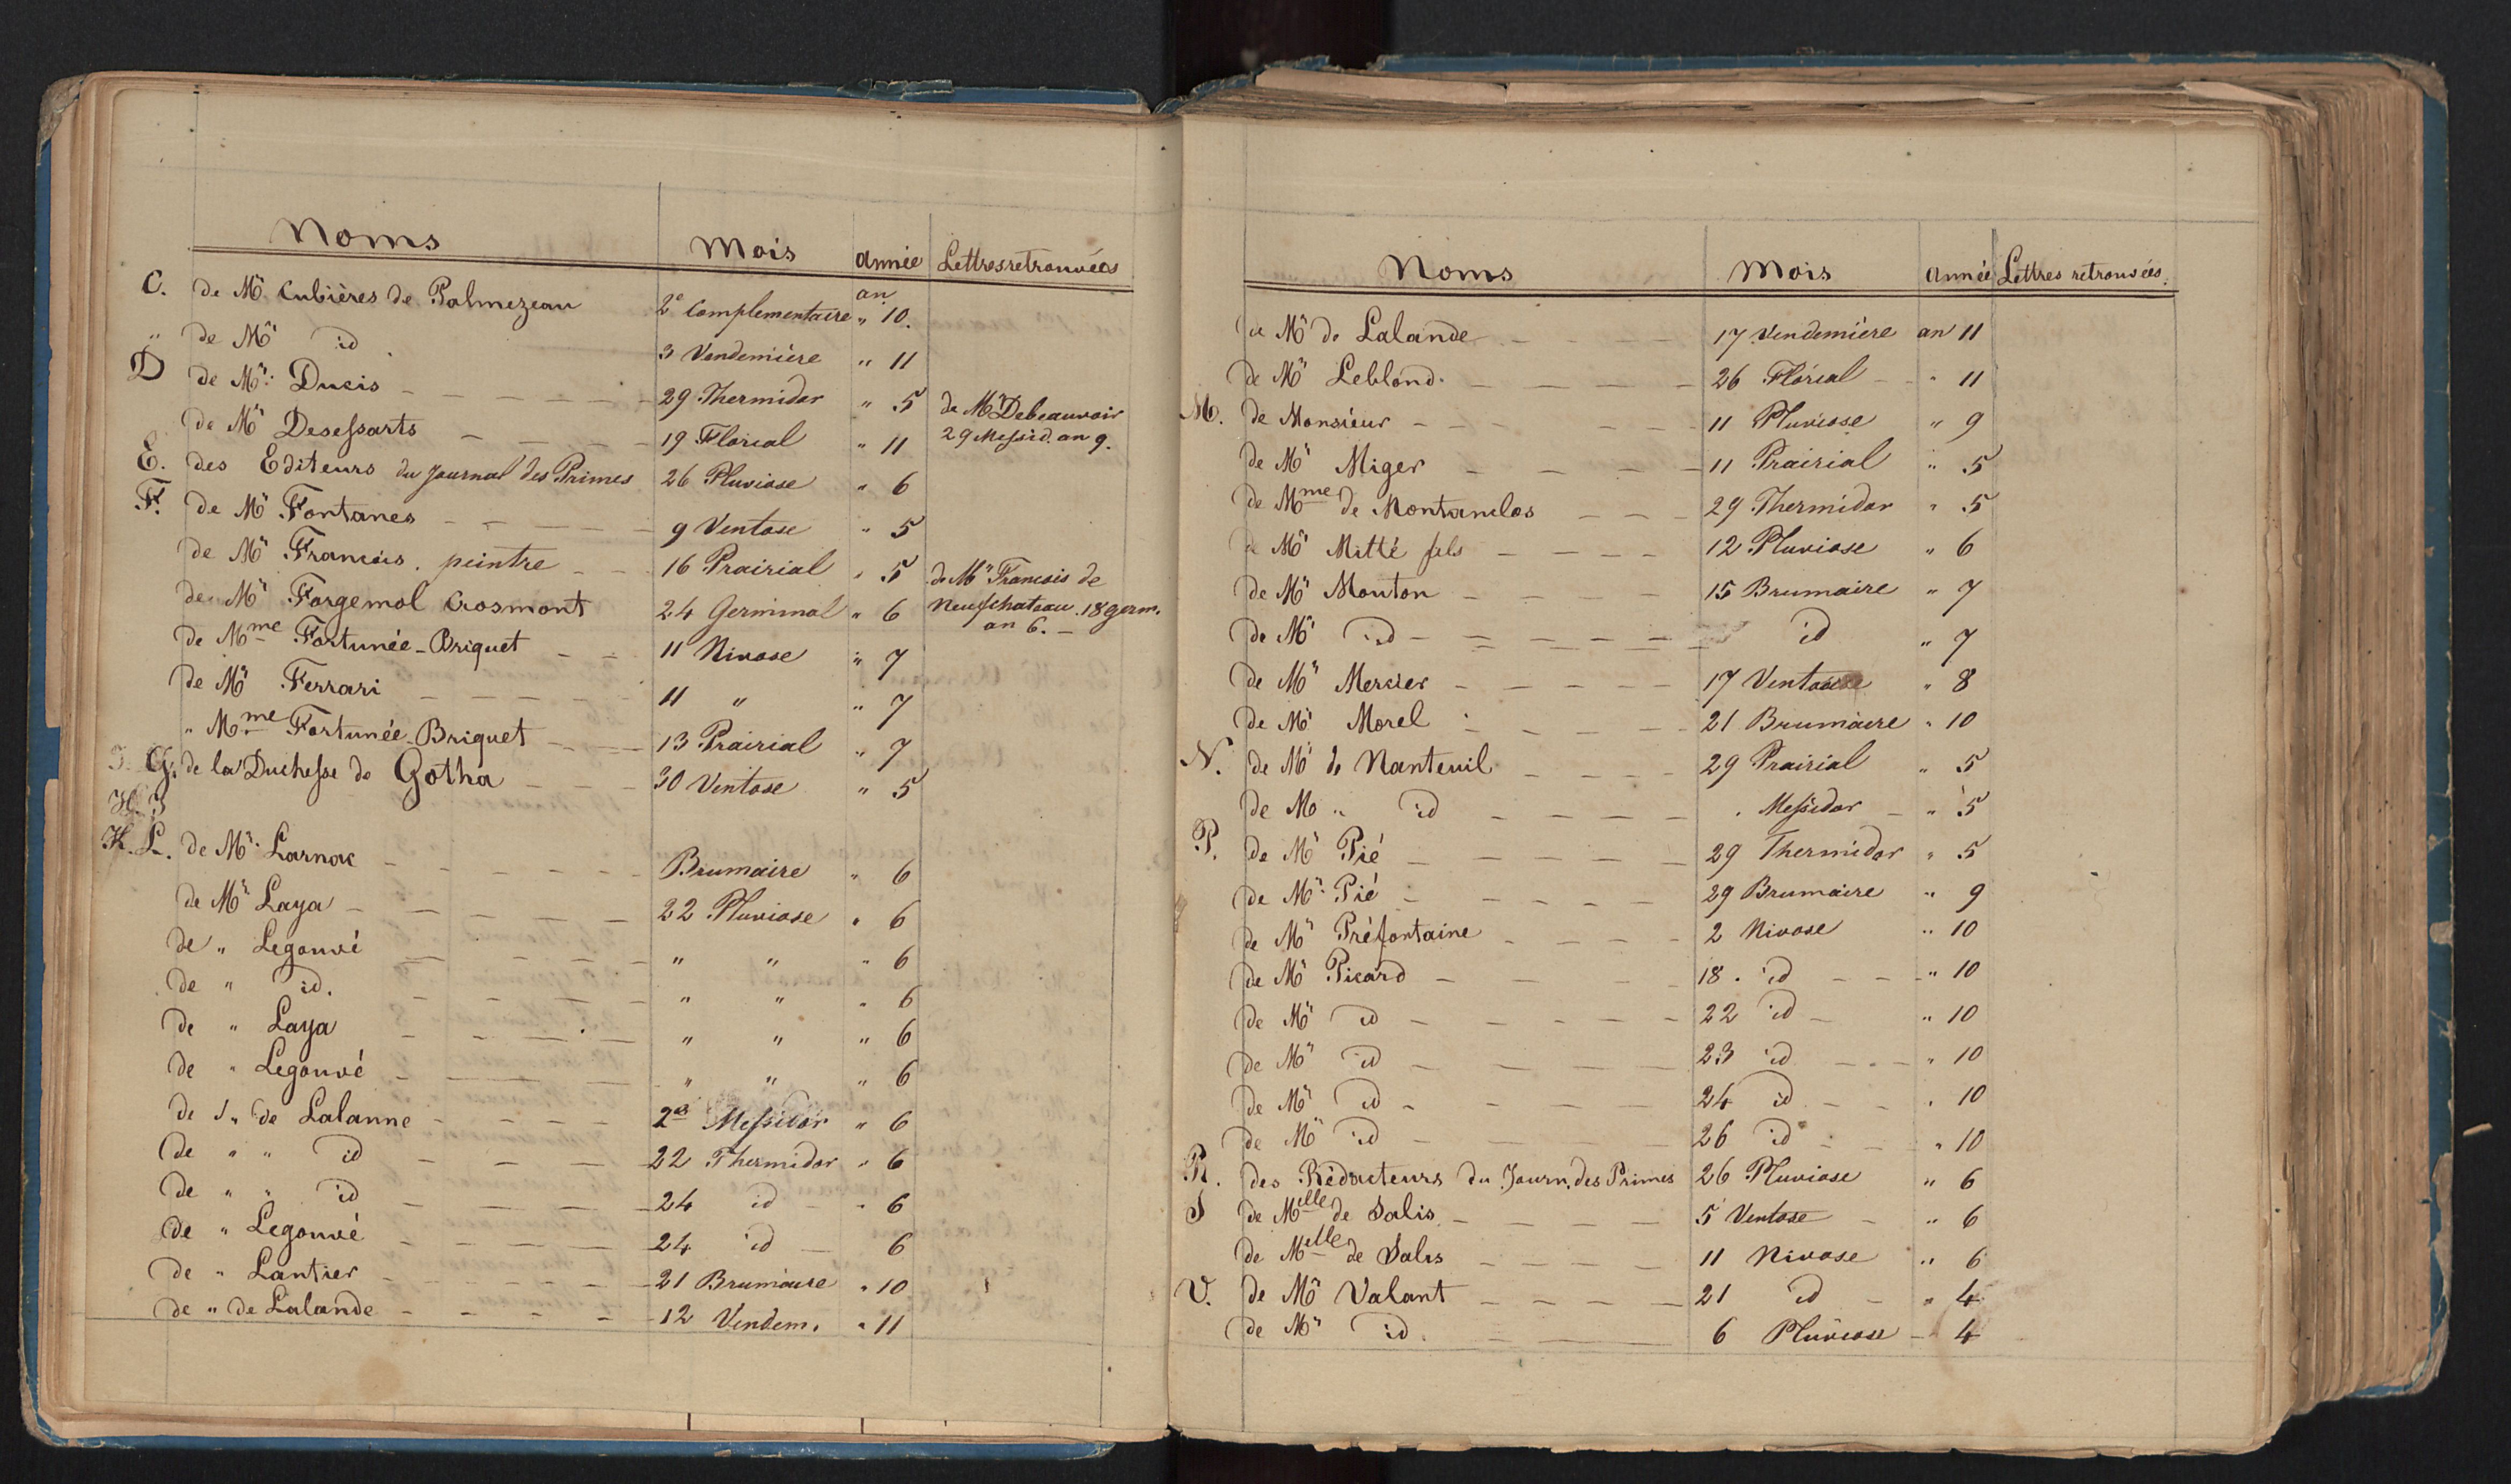 Noms Mois Année Lettres retrouvées
C. de Mr Cubières de Palmezeau 2e Complementaire an " 10.
" de Mr id 3 Vendemière " 11
D de Mr. Ducis 29 Thermidor " 5 de Mr Debeauvoir
de Mr Desessarts 19 Floréal " 11 29 Messid. an 9.
E. des Editeurs du Journal des Primes 26 Pluviose " 6
F. de Mr Fontanes 9 Ventose " 5
de Mr Francois, peintre 16 Prairial " 5 de Mr Francois de
de Mr Forgemol Crosmont 24 Germinal " 6 Neufchateau. 18 germ.
an 6.
de Mme Fortunée-Briquet 11 Nivose " 7
de Mr Ferrari 11 " " 7
" Mme Fortunée-Briquet 13 Prairial " 7
G. de la Duchesse de Gotha 30 Ventose " 5
H. I
K. L. de Mr. Larnac Brumaire " 6
de Mr Laya 22 Pluviose " 6
de " Legouvé " " " 6
de " id. " " " 6
de " Laya " " " 6
de " Legouvé " " " 6
de " de Lalanne Messidor " 6
de " " id 22 Thermidor " 6
de " " id 24 id " 6
de " Legouvé 24 id 6
de " Lantier 21 Brumaire " 10
de " de Lalande 12 Vendem. " 11
Noms Mois Année Lettres retrouvées.
de Mr de Lalande 17 Vendemière an 11
de Mr Leblond. 26 Floréal " 11
M. de Monsieur 11 Pluviose " 9
de Mr Miger 11 Prairial " 5
de Mme de Montanclos 29 Thermidor " 5
de Mr Mitté fils 12 Pluviose " 6
de Mr Mouton 15 Brumaire " 7
de Mr id id " 7
de Mr Mercier 17 Ventose " 8
de Mr Morel 21 Brumaire " 10
N. de Mr de Nanteuil 29 Prairial " 5
de M " id Messidor " 5
P. de Mr Pié 29 Thermidor " 5
de Mr. Pié 29 Brumaire " 9
de Mr Préfontaine 2 Nivose " 10
de Mr Picard 18. id " 10
de Mr id 22 id " 10
de Mr id 23 id " 10
de Mr id 24 id " 10
de Mr id 26 id " 10
R. des Rédacteurs du Journ. des Primes 26 Pluviose " 6
S de Melle de Salis 5 Ventose " 6
de Melle de Salis 11 Nivose " 6
V. de Mr Valant 21 id " 4
de Mr id. 6 Pluviose 4